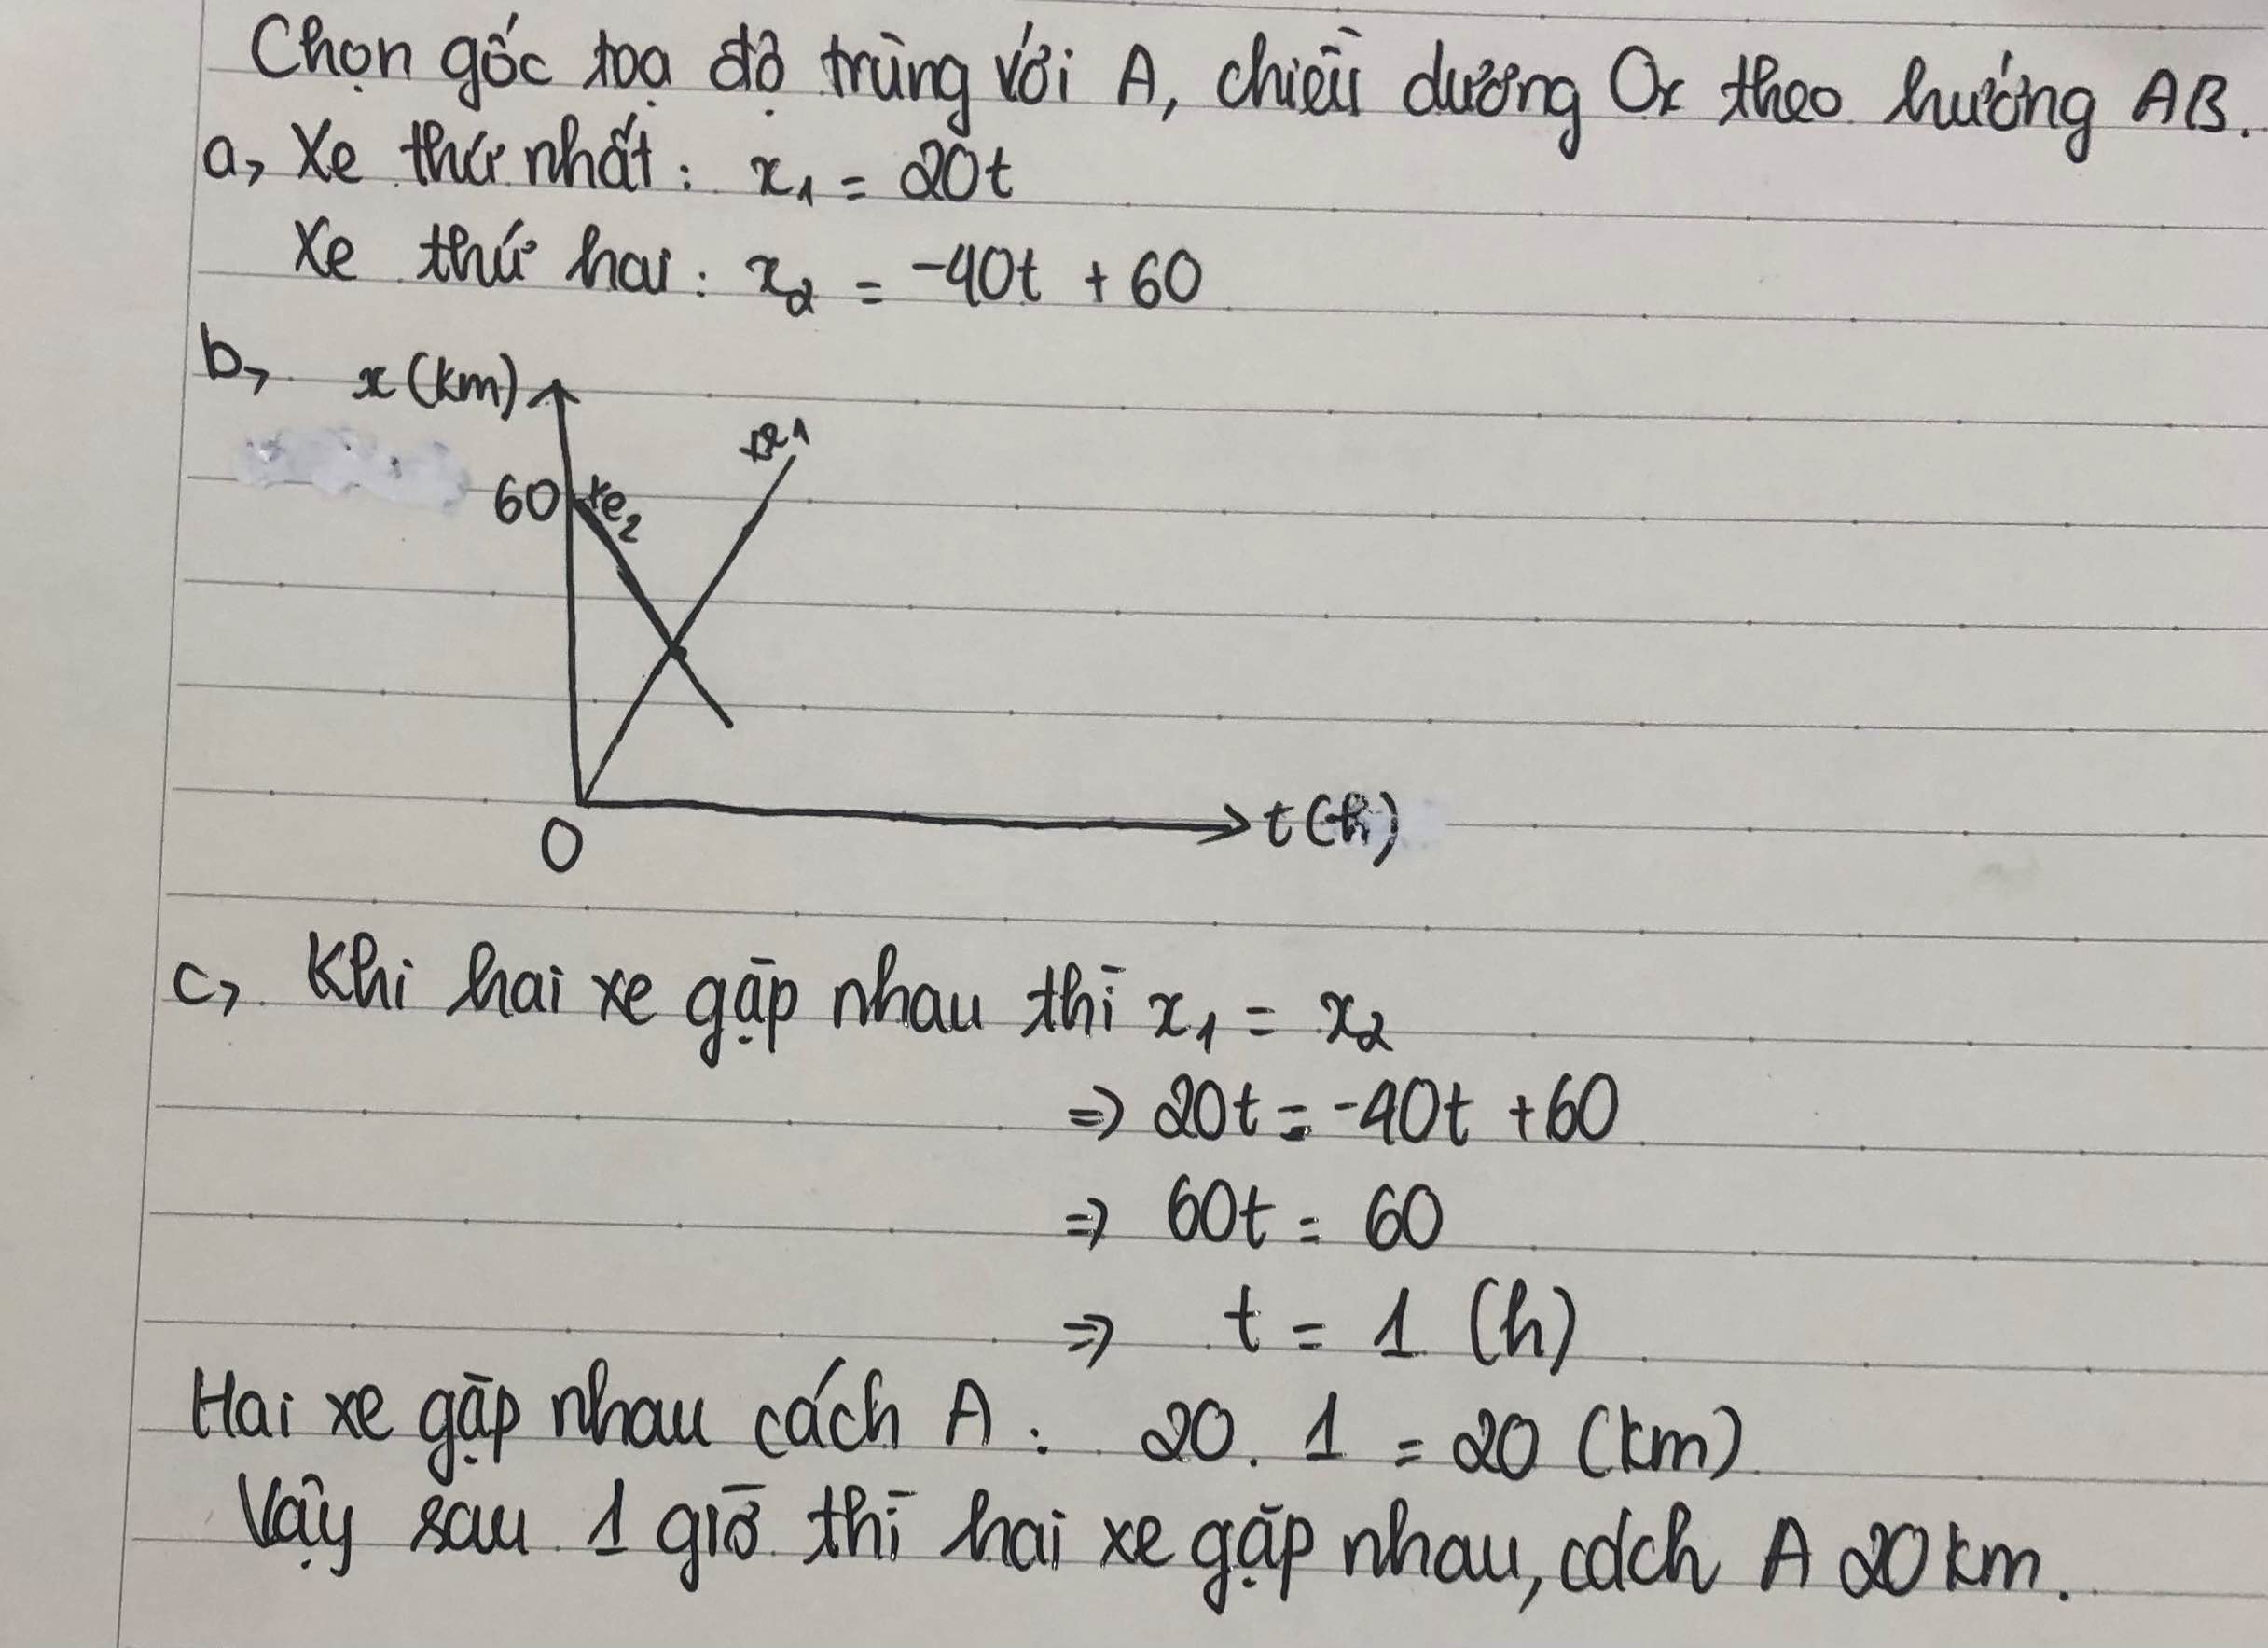 Chọn gốc toạ độ trùng với A, chiều dương Ox theo hướng AB.
a, Xe thứ nhất: x₁ = 20t
Xe thứ hai: x₂ = -40t + 60
b, x (km)
xe 1
60 xe₂
O t (h)
c, Khi hai xe gặp nhau thì x₁ = x₂
⇒ 20t = -40t + 60
⇒ 60t = 60
⇒ t = 1 (h)
Hai xe gặp nhau cách A: 20. 1 = 20 (km)
Vậy sau 1 giờ thì hai xe gặp nhau, cách A 20 km.